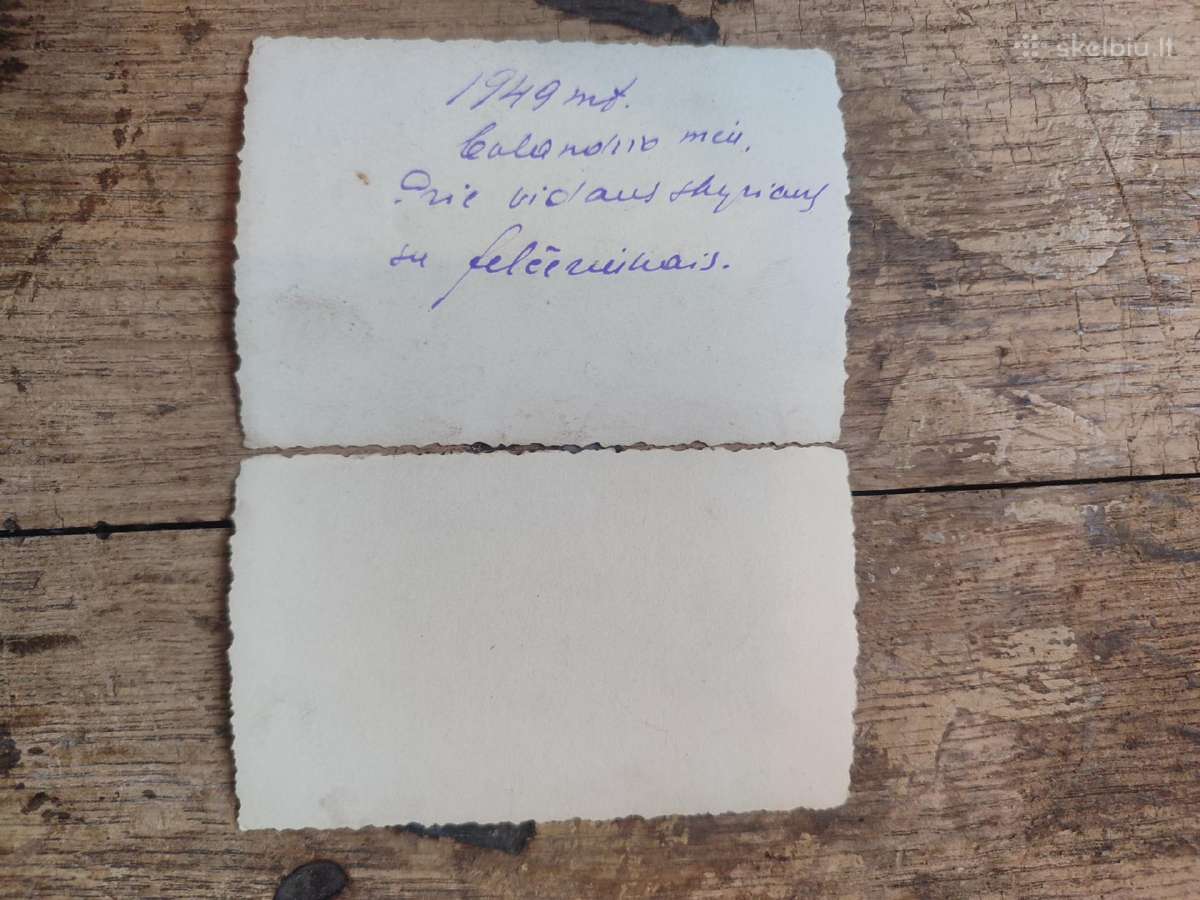 skelbiu.lt
1949 mt.
Balandžio mėn.
Prie vidaus skyriaus
su felčeriukais.